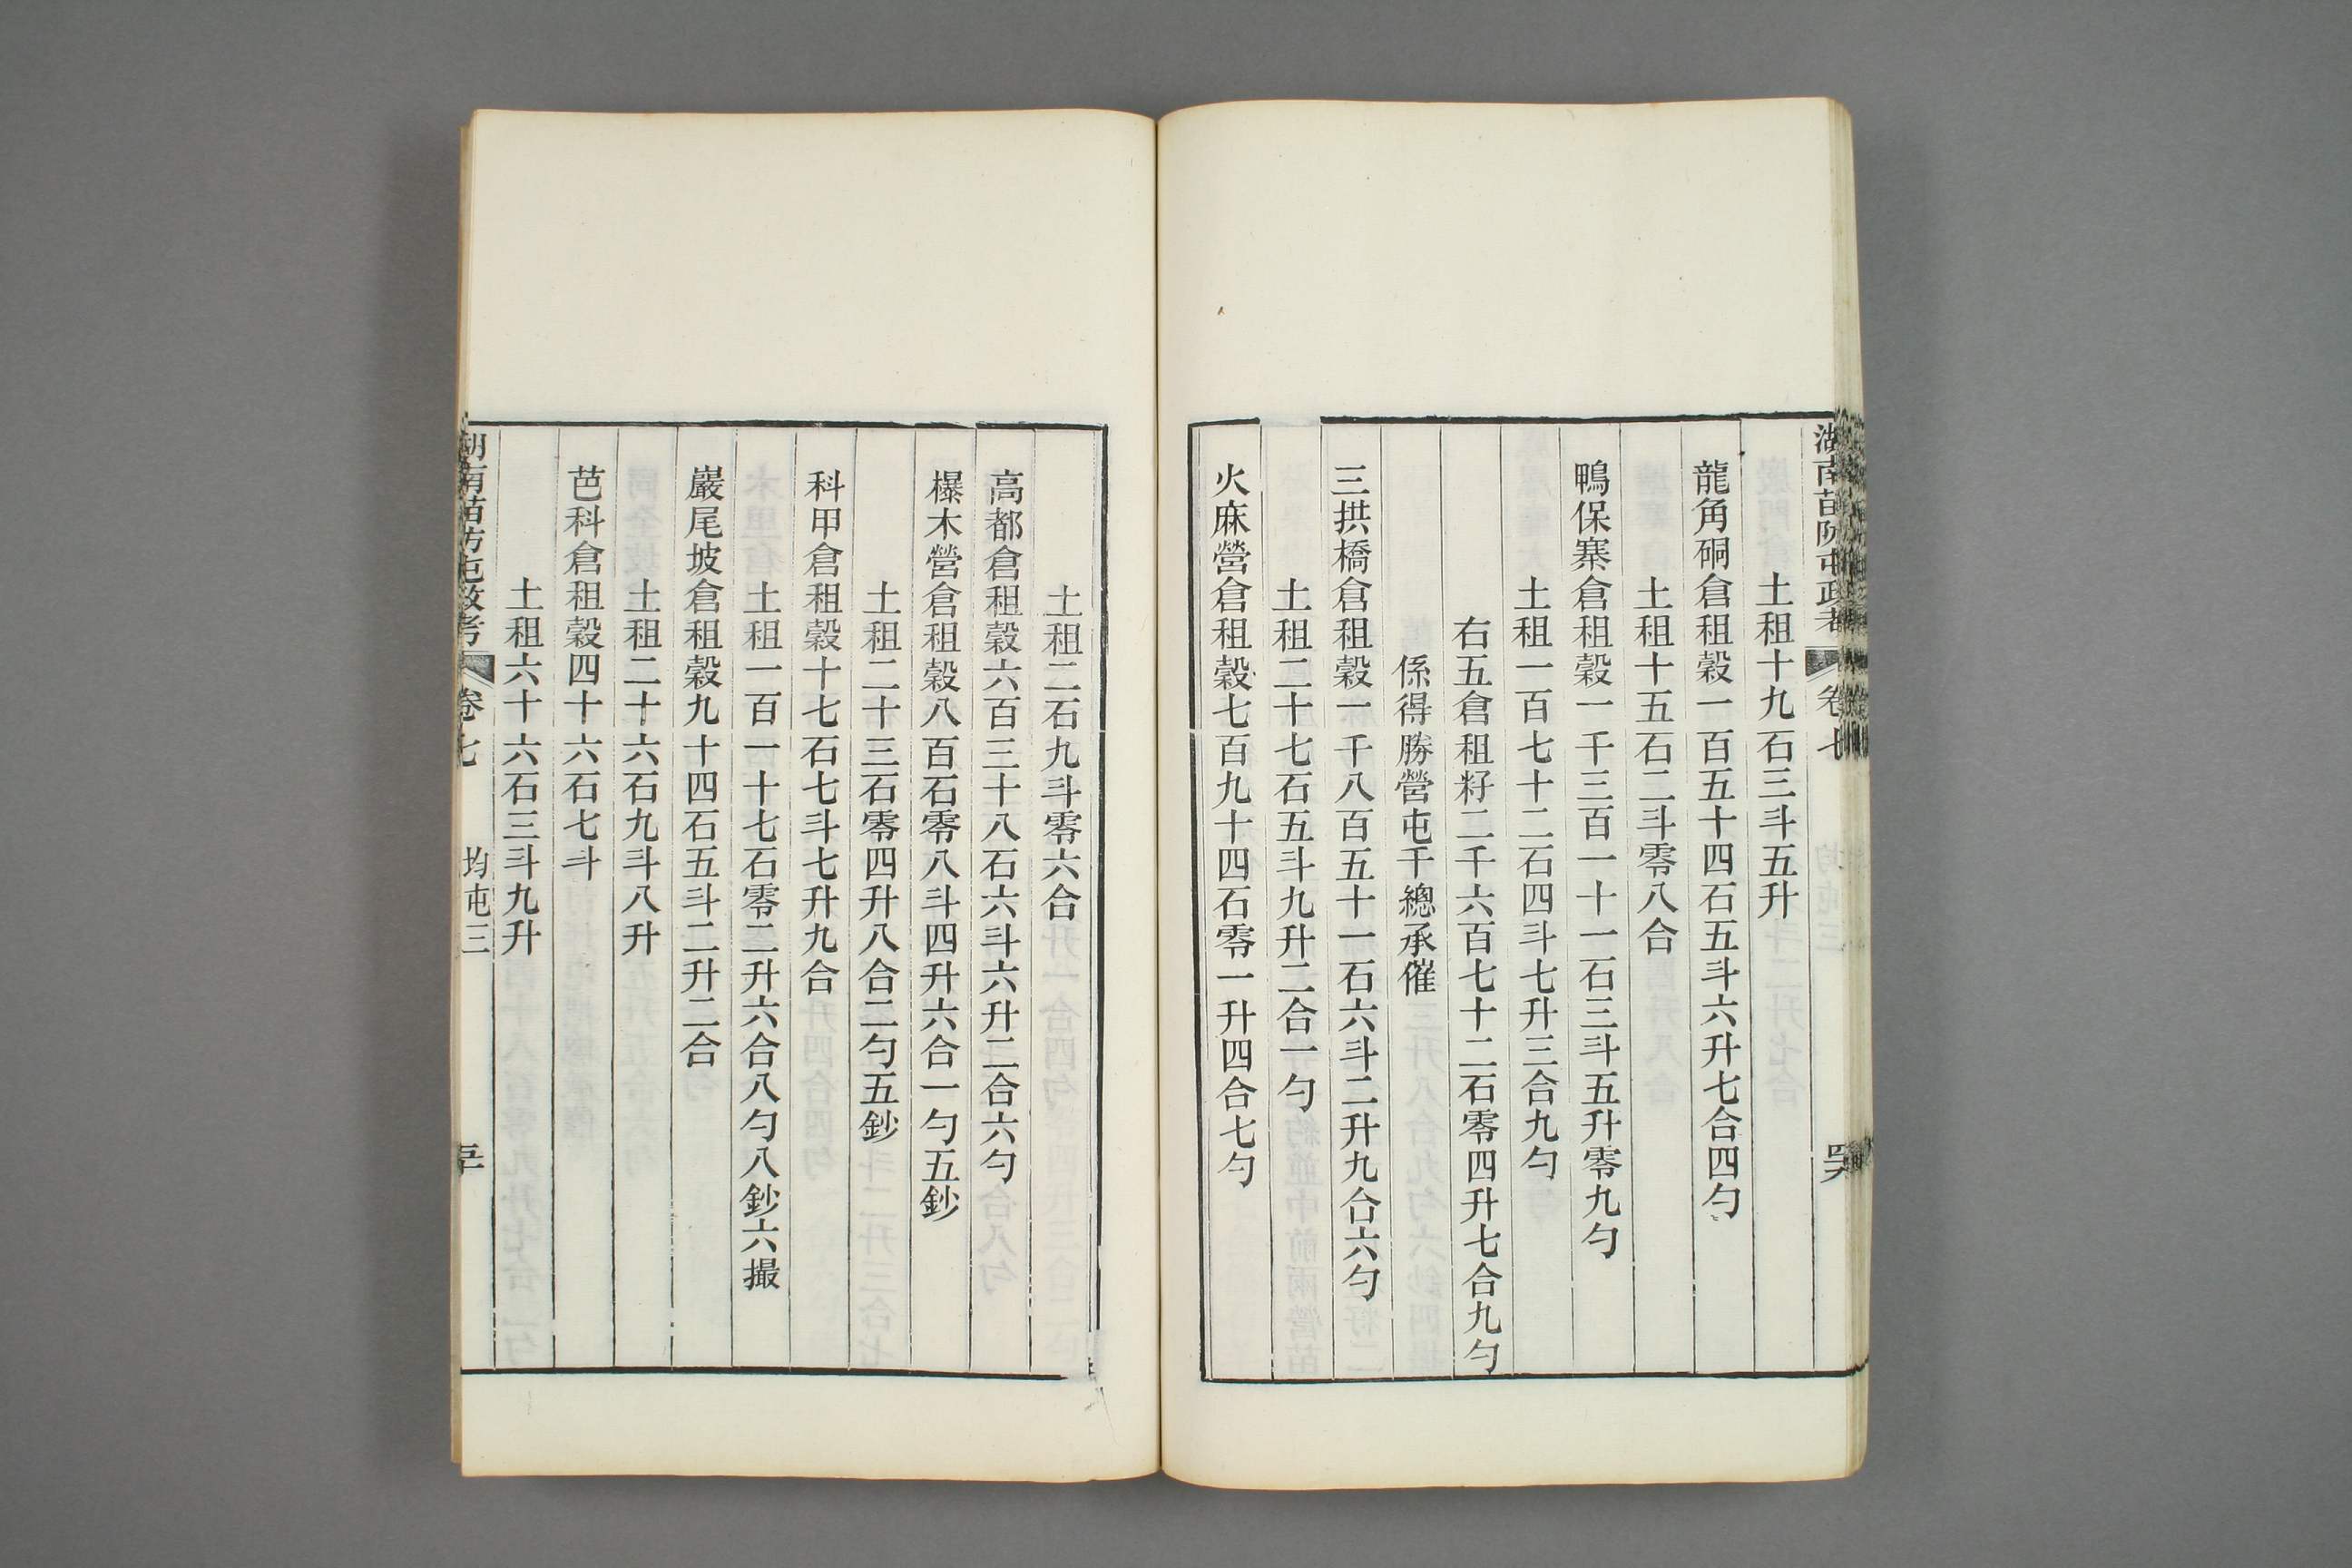 湖南苗防屯政考 卷七
土租十九石三斗五升
龍角硐倉租穀一百五十四石五斗六升七合四勺
土租十五石二斗零八合
鴨保寨倉租穀一千三百一十一石三斗五升零九勺
土租一百七十二石四斗七升三合九勺
右五倉租籽二千六百七十二石零四升七合九勺
係得勝營屯千總承催
三拱橋倉租穀一千八百五十一石六斗二升九合六勺
土租二十七石五斗九升二合一勺
火麻營倉租穀七百九十四石零一升四合七勺
土租二石九斗零六合
高都倉租穀六百三十八石六斗六升二合六勺
欙木營倉租穀八百石零八斗四升六合一勺五鈔
土租二十三石零四升八合二勺五鈔
科甲倉租穀十七石七斗七升九合
土租一百一十七石零二升六合八勺八鈔六撮
巖尾坡倉租穀九十四石五斗二升二合
土租二十六石九斗八升
芭科倉租穀四十六石七斗
土租六十六石三斗九升
湖南苗防屯政考 卷七 均屯三